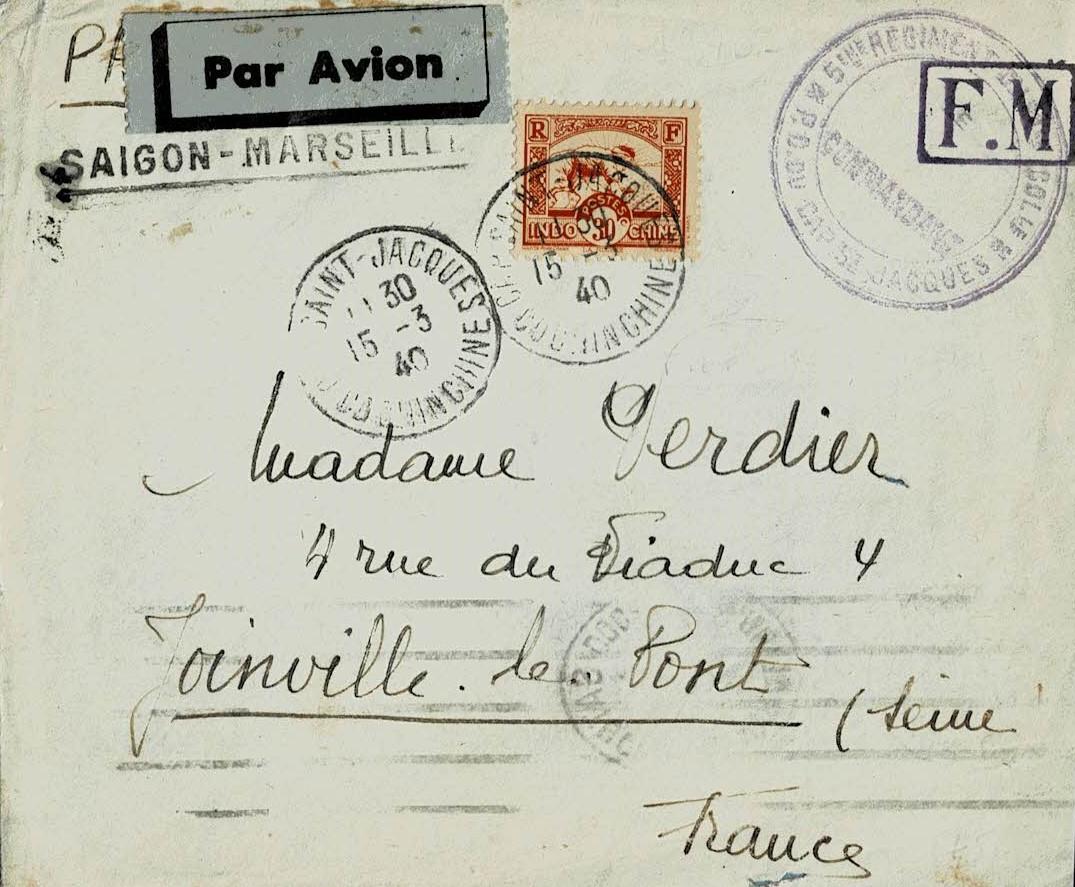 PA
Par Avion
SAIGON-MARSEILLE
R F
POSTES
INDO 30 CHINE
SAINT-JACQUES
11 30
15 -3
40
COCHINCHINE
SAINT-JACQUES
11 30
15 -3
40
COCHINCHINE
5ème REGIMENT COLLE
COMMANDANT
P.C. DU CAP ST JACQUES
F.M
Madame Verdier
4 rue du Viaduc 4
Joinville-le-Pont
(Seine
France